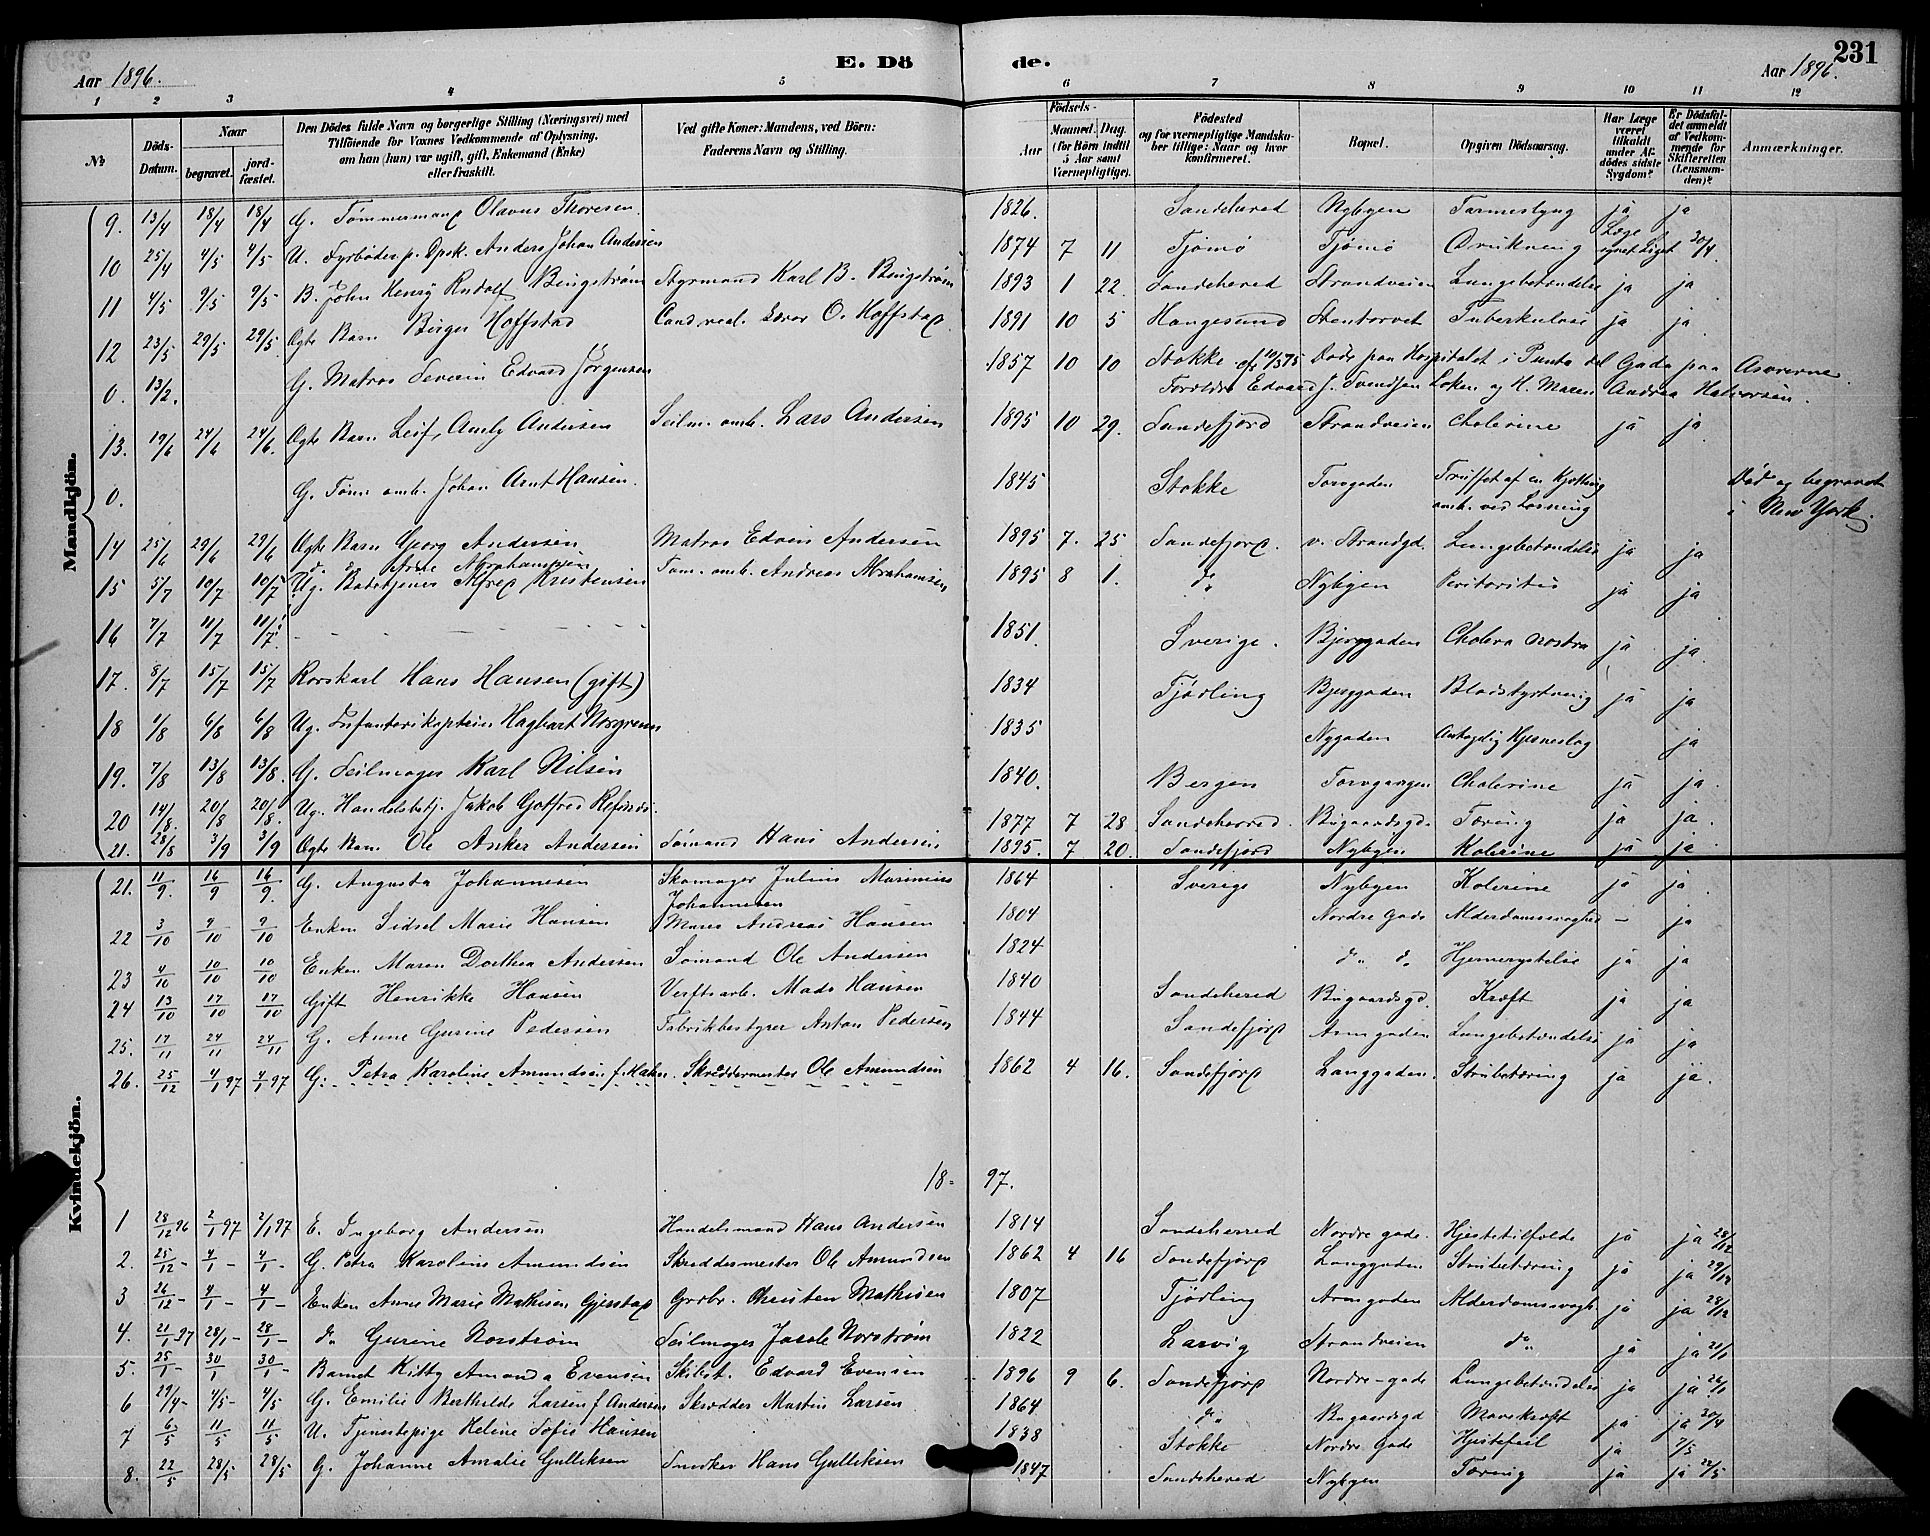 231
Aar 1896. E. Dö de. Aar 1896.
1 2 3 4 5 6 7 8 9 10 11 12
No Döds-Datum. Naar begravet. jordfæstet. Den Dödes fulde Navn og borgerlige Stilling (Næringsvei) med Tilföiende for Voxnes Vedkommende af Oplysning, om han (hun) var ugift, gift, Enkemand (Enke) eller fraskilt. Ved gifte Koner: Mandens, ved Börn: Faderens Navn og Stilling. Födsels- Aar Maaned. Dag. (for Börn indtil 5 Aar samt Værnepligtige). Födested og for værnepligtige Mandskaber tillige: Naar og hvor konfirmeret. Bopæl. Opgiven Dödsaarsag. Har Læge været tilkaldt under Afdödes sidste Sygdom? Er Dödsfaldet anmeldt af Vedkommende for Skifteretten (Lensmanden)? Anmærkninger.
Mandkjön.
9. 13/4 18/4 18/4 G. Tømmermand Olavus Thoresen. 1826. Sandeherred Nybyen Tarmeslyng ja ja
10 25/4 4/5 4/5 U. Fyrbøder p. Dpsk. Anders Johan Andersen 1874 7 11 Tjømø Tjømø Drukning Læge synet Liget 30/4
11 4/5 9/5 9/5 B. John Henry Rudolf Bengstrøm Styrmand Karl B. Bengstrøm 1893 1 22. Sandeherred Strandveien Lungebetændelse ja ja
12 23/5 29/5 29/5. Ægte Barn Birger Hoffstad Cand. real. Lærer O. Hoffstad 1891 10 5 Haugesund Stentorvet Tuberkulose ja ja.
0. 13/2. G. Matros Severin Edvard Jørgensen 1857 10 10 Stokke Døde paa Hospitalet i Punta del Gada paa Asorerne.
Forældre Edvard J. Svendsen Løken og H. Maren Andrea Halvorsen.
13. 19/6 24/6 24/6. Ægte Barn Leif, Amly Andersen Seilm. arb. Lars Andersen 1895 10 29. Sandefjord Strandveien Cholerine ja ja
0. G. Tøm arb. Johan Arnt Hansen. 1845 Stokke Torvgaden Truffet af en Kjetting arb. ved Losning Død og begravet i New York.
14 25/6 29/6 29/6 Ægte Barn Georg Andersen Matros Edvin Andersen 1895 7. 25 Sandefjord. v. Strandgd. Lungebetændelse ja ja
d. d. Arne Abrahamsen
15 5/7 10/7 10/7 Ug. Badetjener Alfred Kristensen Tøm. arb. Andreas Abrahamsen 1895 8 1. do Nybyen Peritoritis ja ja
16 7/7 11/7 11/7. - - - - - - 1851. Sverige. Bjerggaden Cholera nostra ja ja
17. 8/7 15/7 15/7 Rorskarl Hans Hansen (gift) 1834 Tjødling Bjerggaden Blodstyrtning ja ja
18 1/8 6/8 6/8 Ug. Infanterikaptein Hagbart Norgreen 1835 Nygaden Antagelig Hjerneslag ja
19. 7/8 13/8 13/8. G. Seilmager Karl Nilsen 1840. Bergen Torvgangen Cholerine ja ja.
20 14/8. 20/8 20/8. Ug. Handelsbetj. Jakob Gotfred 1877 7 28. Sandeherred. Bugaardsgd. Tæring ja ja.
21. 28/8 3/9 3/9 Ægte Barn Ole Anker Andersen Sømand Hans Andersen 1895. 7 20. Sandefjord Nybyen Kolerine ja ja
Kvindekjön.
21. 11/9. 16/9 16/9. G. Augusta Johannesen Skomager Julius Marinius Johannesen 1864 Sverige Nybyen Kolerine ja ja
22 3/10 9/10 9/10 Enken Sidsel Marie Hansen Murer Andreas Hansen 1804 Nordre Gade Alderdomssvaghed - ja
23 4/10 10/10 10/10 Enken Maren Dorthea Andersen Sømand Ole Andersen 1824 d. d. Hjernerystelse ja ja
24 13/10 17/10 17/10 Gift Henrikke Hansen Verftsarb. Mads Hansen 1840 Sandeherred Bugaardsgd. Kræft ja ja
25. 17/11 24/11 24/11 G. Anne Gurine Pedersen Fabrikbestyrer Anton Pedersen 1844 Sandefjord Aamgaden Lungebetændelse ja ja
26. 25/12 4/1 97 4/1 97 G: Petra Karoline Amundsen f. Hahn. Skræddermester Ole Amundsen 1862 4 16. Sandefjord Langgaden. Strubetæring ja ja.
18= 97.
1 28/12 96 2/1 97 2/1 97 E. Ingeborg Andersen Handelsmand Hans Andersen 1814 Sandeherred Nordre gade. Hjertetilfælde ja ja 28/12
2. 25/12 - 4/1 - 4/1 - G. Petra Karoline Amundsen Skræddermester Ole Amundsen 1862 4 16 Sandefjord Langgaden Strubetæring ja ja 29/12
3 26/12 - 4/1 - 4/1 - Enken Anne Marie Mathisen Gjerstad Grdbr. Christen Mathisen 1807 Tjødling Aamgaden Alderdomssvagh. ja ja 28/12
4. 21/1 97 28/1 - 28/1 - do Gurine Norstrøm Seilmager Jacob Norstrøm 1822 Larvig Strandveien do ja ja 21/1
5. 25/1 - 30/1 30/1 - Barnet Kitty Amanda Evensen Skibst. Edvard Evensen 1896 9 6. Sandefjord Nordre-gade Lungebetændelse ja ja 26/1
6 29/4 - 4/5 - 4/5 G. Emilie Berthilde Larsen f. Andersen Skrædder Martin Larsen 1864 do Bugaardsgd Mavekræft ja ja 30/4
7 6/5 11/5 11/5 U. Tjenestepige Helene Sofie Hansen 1838 Stokke Nordre Gade Hjertefeil ja 7/5
8. 22/5 28/5 28/5 G. Johanne Amalie Gulliksen Snedker Hans Gulliksen 1847 Sandeherred Nybyen Tæring ja ja 22/5